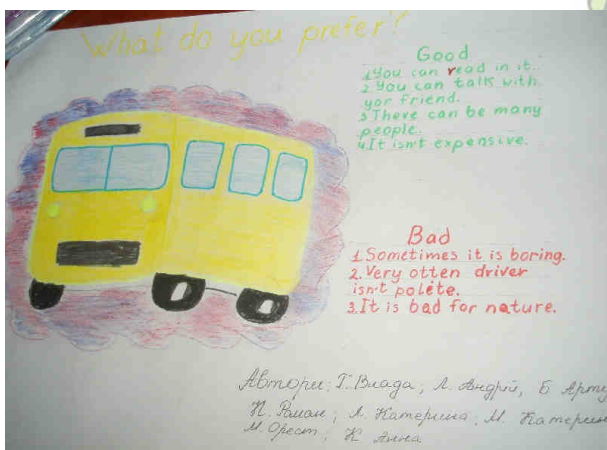 What do you prefer?
Good
1. You can read in it.
2. You can talk with
yor friend.
3 There can be many
people.
4. It isn't expensive.
Bad
1 Sometimes it is boring.
2. Very otten driver
isn't polite.
3. It is bad for nature.
Автори: Г. Влада, Л. Андрій, Б Арту
П. Роман, Л. Катерина, М. Катерин
М. Орест, К Анна